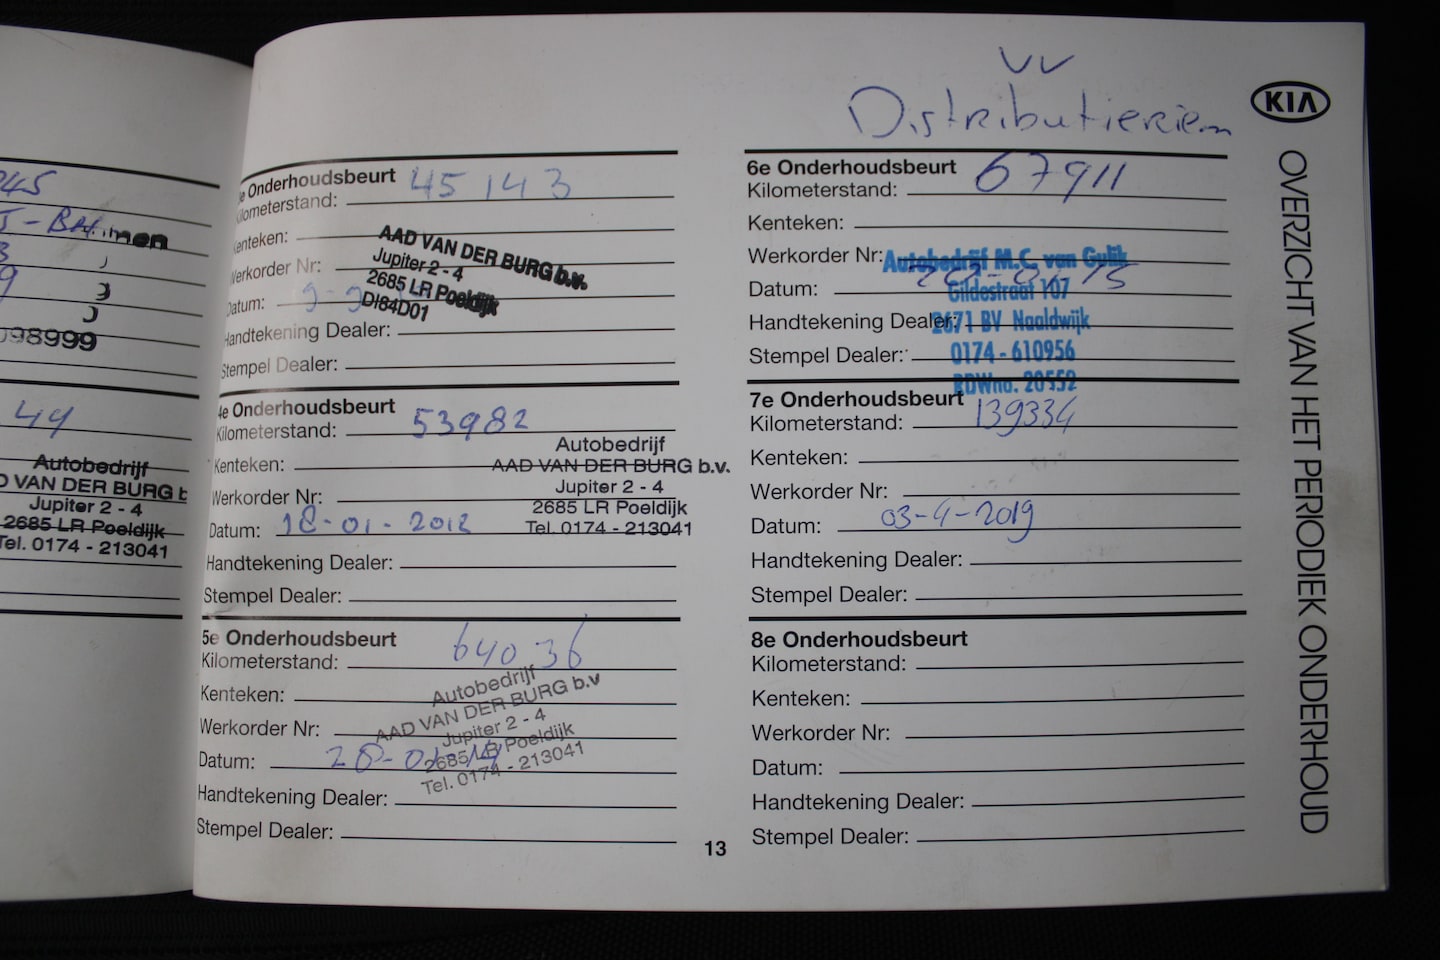 Autobedrijf
Jupiter 2 - 4
2685 LR Poeldijk
Tel. 0174 - 213041
e Onderhoudsbeurt 45143
Kilometerstand:
Kenteken:
Werkorder Nr:
Datum:
AAD VAN DER BURG b.v.
Jupiter 2 - 4
2685 LR Poeldijk
DI84D01
Handtekening Dealer:
Stempel Dealer:
4e Onderhoudsbeurt
Kilometerstand: 53982
Kenteken:
Werkorder Nr:
Datum: 18-01-2012
Autobedrijf
AAD VAN DER BURG b.v.
Jupiter 2 - 4
2685 LR Poeldijk
Tel. 0174 - 213041
Handtekening Dealer:
Stempel Dealer:
5e Onderhoudsbeurt
Kilometerstand: 64036
Kenteken:
Werkorder Nr:
Datum:
Autobedrijf
AAD VAN DER BURG b.v
Jupiter 2 - 4
2685 LR Poeldijk
Tel. 0174 - 213041
Handtekening Dealer:
Stempel Dealer:
13
VV
Distributieriem
6e Onderhoudsbeurt
Kilometerstand: 67911
Kenteken:
Werkorder Nr:
Datum:
Autobedrijf M.C. van Gulik
Gildestraat 107
2671 BV Naaldwijk
0174 - 610956
RDWno. 20552
Handtekening Dealer:
Stempel Dealer:
7e Onderhoudsbeurt
Kilometerstand: 139334
Kenteken:
Werkorder Nr:
Datum: 03-4-2019
Handtekening Dealer:
Stempel Dealer:
8e Onderhoudsbeurt
Kilometerstand:
Kenteken:
Werkorder Nr:
Datum:
Handtekening Dealer:
Stempel Dealer:
KIA
OVERZICHT VAN HET PERIODIEK ONDERHOUD